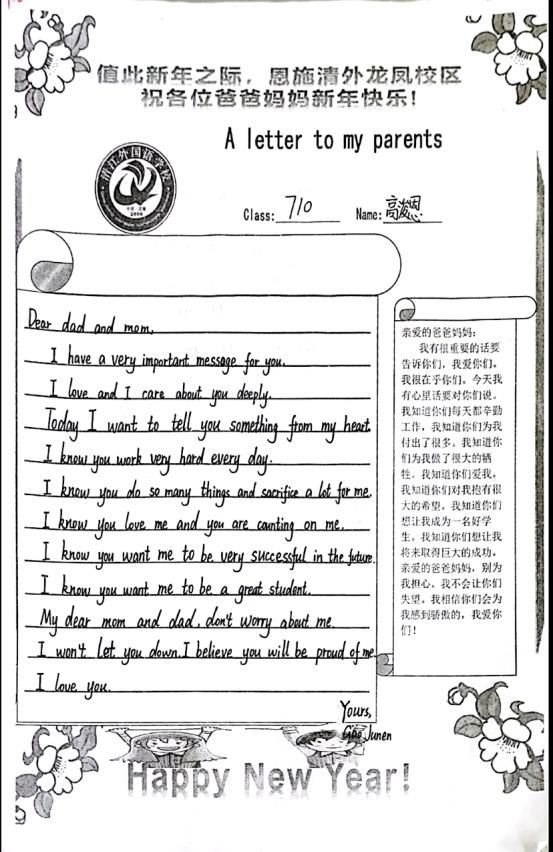 值此新年之际，恩施清外龙凤校区
祝各位爸爸妈妈新年快乐！
A letter to my parents
清江外国语学校
2006
Class: 710 Name: 高
Dear dad and mom,
I have a very important message for you.
I love and I care about you deeply.
Today I want to tell you something from my heart.
I know you work very hard every day.
I know you do so many things and sacrifice a lot for me.
I know you love me and you are counting on me.
I know you want me to be very successful in the future.
I know you want me to be a great student.
My dear mom and dad, don't worry about me.
I won't let you down. I believe you will be proud of me.
I love you.
Yours,
Gao Junen
亲爱的爸爸妈妈：
我有很重要的话要
告诉你们，我爱你们。
我很在乎你们。今天我
有心里话要对你们说。
我知道你们每天都辛勤
工作，我知道你们为我
付出了很多。我知道你
们为我做了很大的牺
牲。我知道你们爱我。
我知道你们对我抱有很
大的希望。我知道你们
想让我成为一名好学
生。我知道你们想让我
将来取得巨大的成功。
亲爱的爸爸妈妈，别为
我担心。我不会让你们
失望。我相信你们会为
我感到骄傲的，我爱你
们！
Happy New Year!